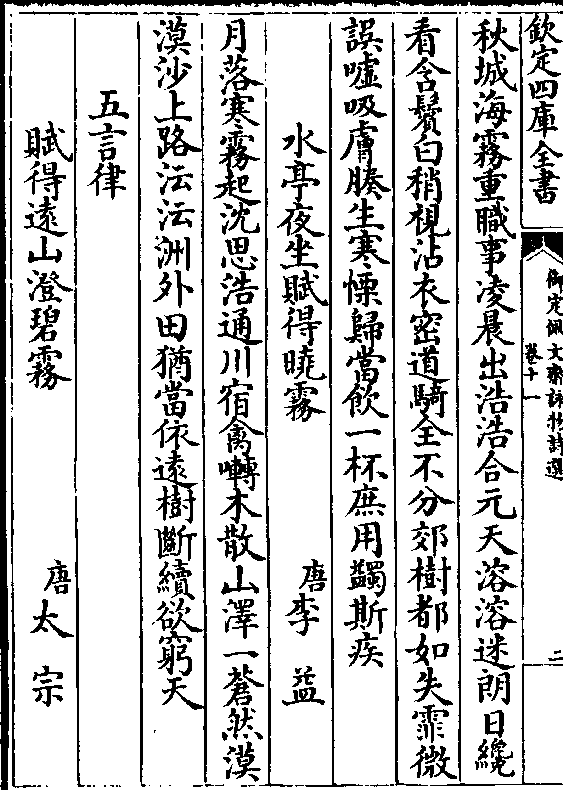 欽定四庫全書
御定佩文齋詠物詩選
卷十一
二
秋城海霧重職事凌晨出浩浩合元天溶溶迷朗日纔
看含鬢白稍視沾衣密道騎全不分郊樹都如失霏微
誤噓吸膚腠生寒慄歸當飲一杯庶用蠲斯疾
水亭夜坐賦得曉霧　唐李益
月落寒霧起沈思浩通川宿禽囀木散山澤一蒼然漠
漠沙上路沄沄洲外田猶當依遠樹斷續欲窮天
五言律
賦得遠山澄碧霧　唐太宗